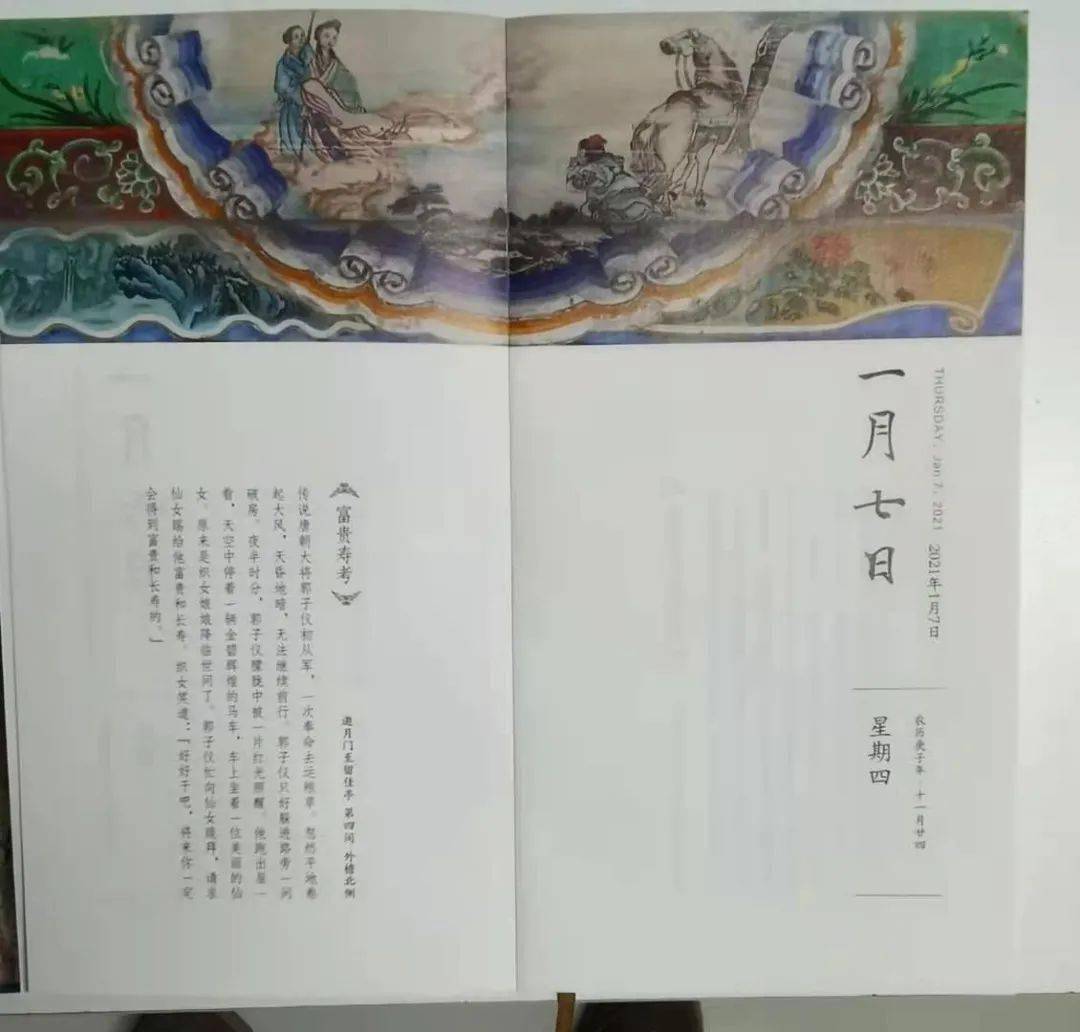 一月七日
THURSDAY, Jan 7, 2021
2021年1月7日
星期四
农历庚子年·十一月廿四
富贵寿考
邀月门至留佳亭 第四间 外檐北侧
传说唐朝大将郭子仪初从军，一次奉命去运粮草。忽然平地卷
起大风，天昏地暗，无法继续前行。郭子仪只好躲进路旁一间
破房。夜半时分，郭子仪朦胧中被一片红光照醒。他跑出屋一
看，天空中停着一辆金碧辉煌的马车，车上坐着一位美丽的仙
女。原来是织女娘娘降临世间了。郭子仪忙向仙女跪拜，请求
仙女赐给他富贵和长寿。织女笑道：“好好干吧，将来你一定
会得到富贵和长寿的。”